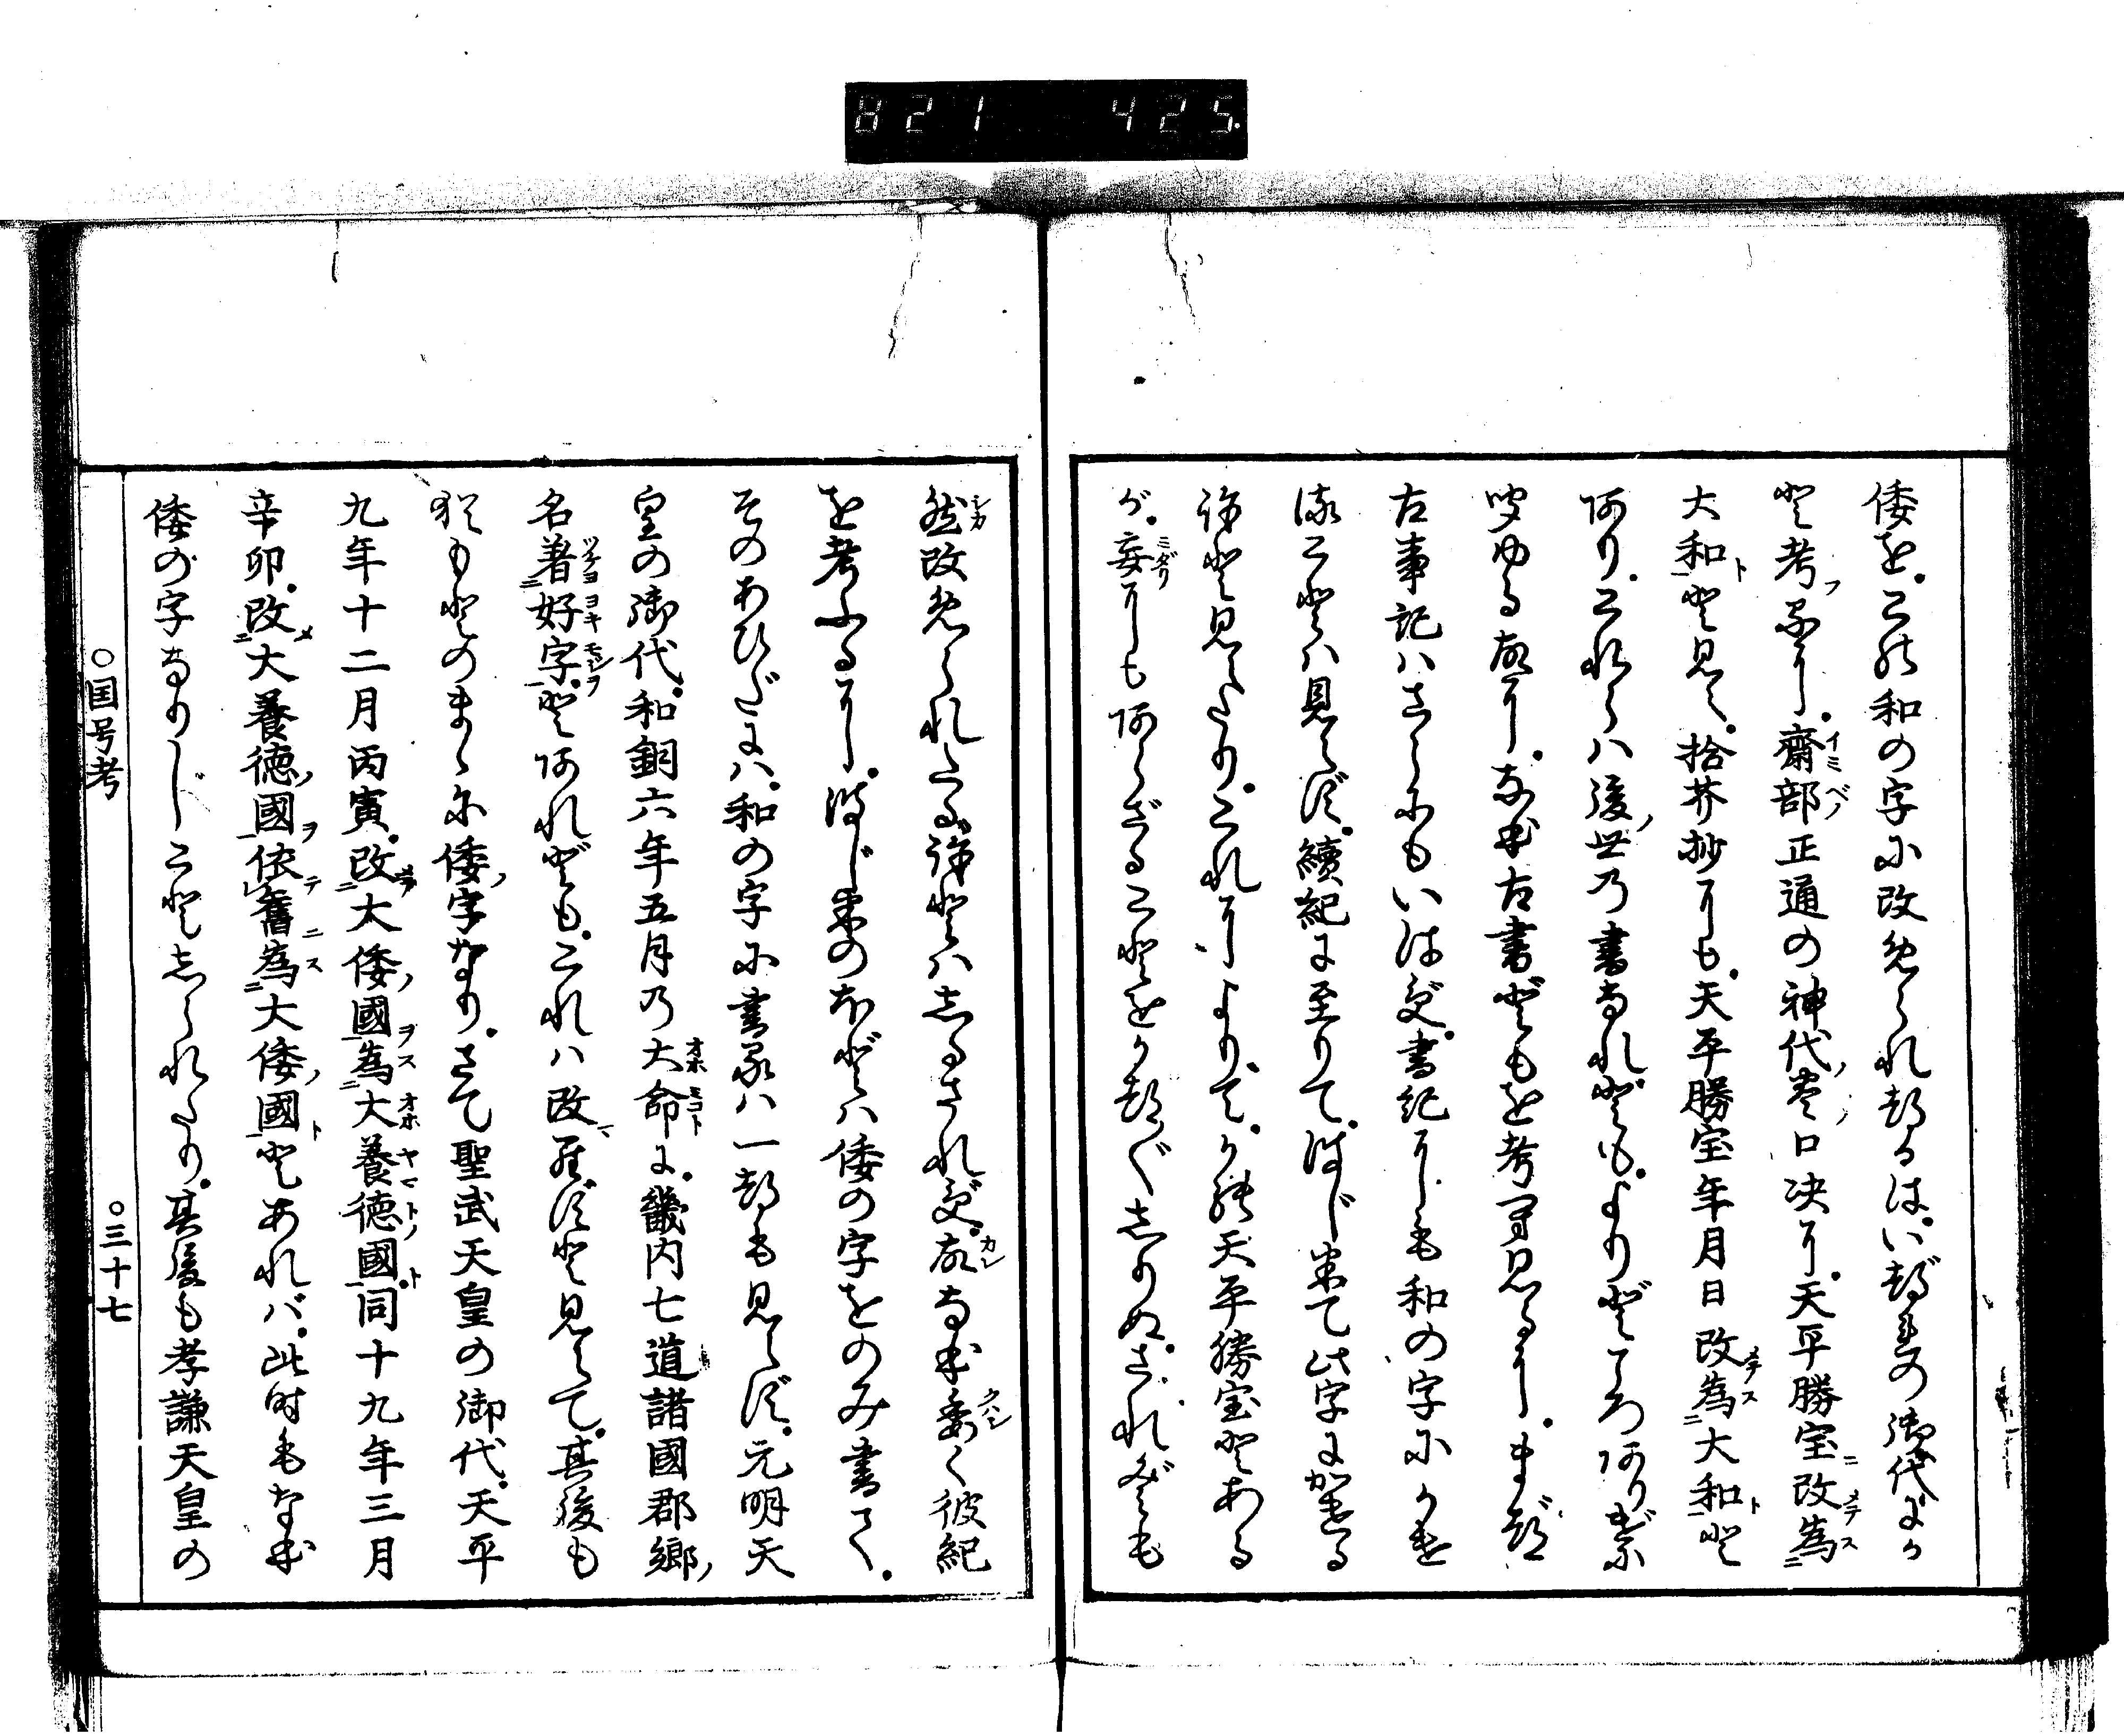 倭を。この和の字に改められたるは。いづれの御代にか
と考ふるに。齋部正通の神代巻口决に。天平勝宝改為
大和と見え。拾芥抄にも。天平勝宝年月日改為大和と
あり。これらハ後世の書なれども。よりどころありげに
聞ゆる故に。なほ古書どもを考へ見るに。まづ
古事記ハさらにもいはず。書紀にも和の字にかけ
ることハ見えず。續紀に至りて。はじめて此字にかける
こと見えたり。これによりて。かの天平勝宝とある
が。妄にもあらざることをかつ〴〵しりぬ。されども
然改められたることハしるされず。故なほ委く彼紀
を考ふるに。はじめのほどハ倭の字をのみ書て。
そのあひだにハ。和の字に書るハ一つも見えず。元明天
皇の御代。和銅六年五月の大命に。畿内七道諸國郡郷
名著好字。とあれども。これハ改らずと見えて。其後も
猶もとのまゝに倭字なり。さて聖武天皇の御代。天平
九年十二月丙寅。改大倭國為大養徳國同十九年三月
辛卯。改大養徳國依舊為大倭國とあれバ。此時もなほ
倭の字なりしことしられたり。其後も孝謙天皇の
○国号考
○三十七
821 425